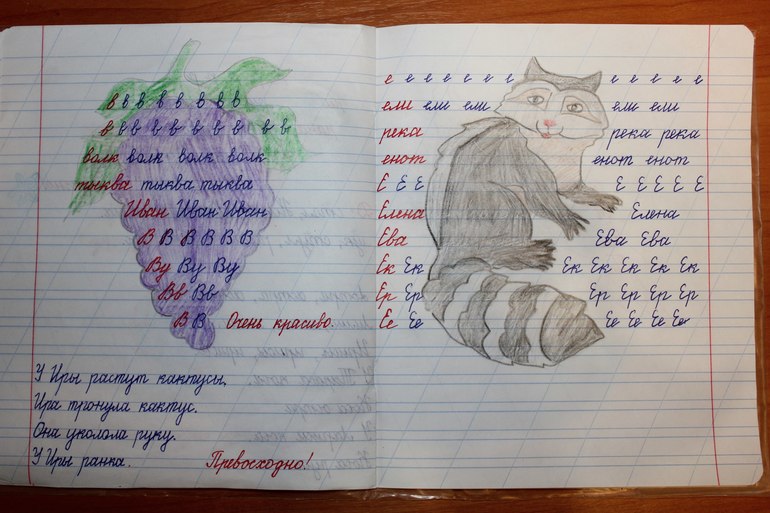 в в в в в в в в
в в в в в в в в в в в
волк волк волк волк
тыква тыква тыква
Иван Иван Иван
В В В В В В
Ву Ву Ву
Вв Вв
В В Очень красиво.
У Иры растут кактусы.
Ира тронула кактус.
Она уколола руку.
У Иры ранка. Превосходно!
е е е е е е е е е е е е
ели ели ели ели ели
река река река
енот енот енот
Е Е Е Е Е Е Е Е
Елена Елена
Ева Ева Ева
Ек Ек Ек Ек Ек Ек Ек
Ер Ер Ер Ер Ер Ер
Ее Ее Ее Ее Ее Ее